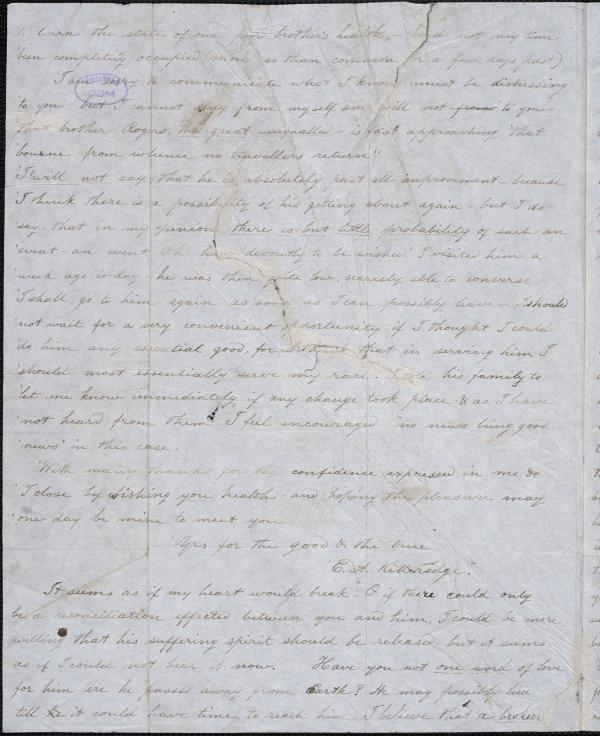 to learn the state of our poor brother's health, – had not my time
been completely occupied (more so than common for a few days past)
"I am sorry to communicate what I know must be distressing
"to you – but I cannot any from myself and will not from to you –
"that brother Rogers, the great unequalled – is fast approaching "that
"bourne from whence no travellers return"
"I will not say that he is absolutely past all improvement – because
"I think there is a possibility of his getting about again – but I do
"say – that in my opinion there is but little probability of such an
"event – an event Oh how devoutly to be wished! I visited him a
"week ago to-day – he was then quite low, scarcely able to converse –
"I shall go to him again as soon as I can possibly leave – I should
"not wait for a very convenient opportunity if I thought I could
"do him any essential good, for I think that in serving him I
"should most essentially serve my race. his family to
"let me know immediately if any change took place & as I have
"not heard from them I feel encouraged "no news being good
"news" in this case.
"With many thanks for the confidence expressed in me &c
"I close by wishing you health – and hoping the pleasure may
"one day be mine to meet you
"Yrs for the good & the true
"E. A. Kittredge."
It seems as if my heart would break. O if there could only
be a reconciliation effected between you and him, I could be more
willing that his suffering spirit should be released – but it seems
as if I could not bear it now. Have you not one word of love
for him ere he passes away from Earth? He may possibly live
till it could have time to reach him. I believe that a broken